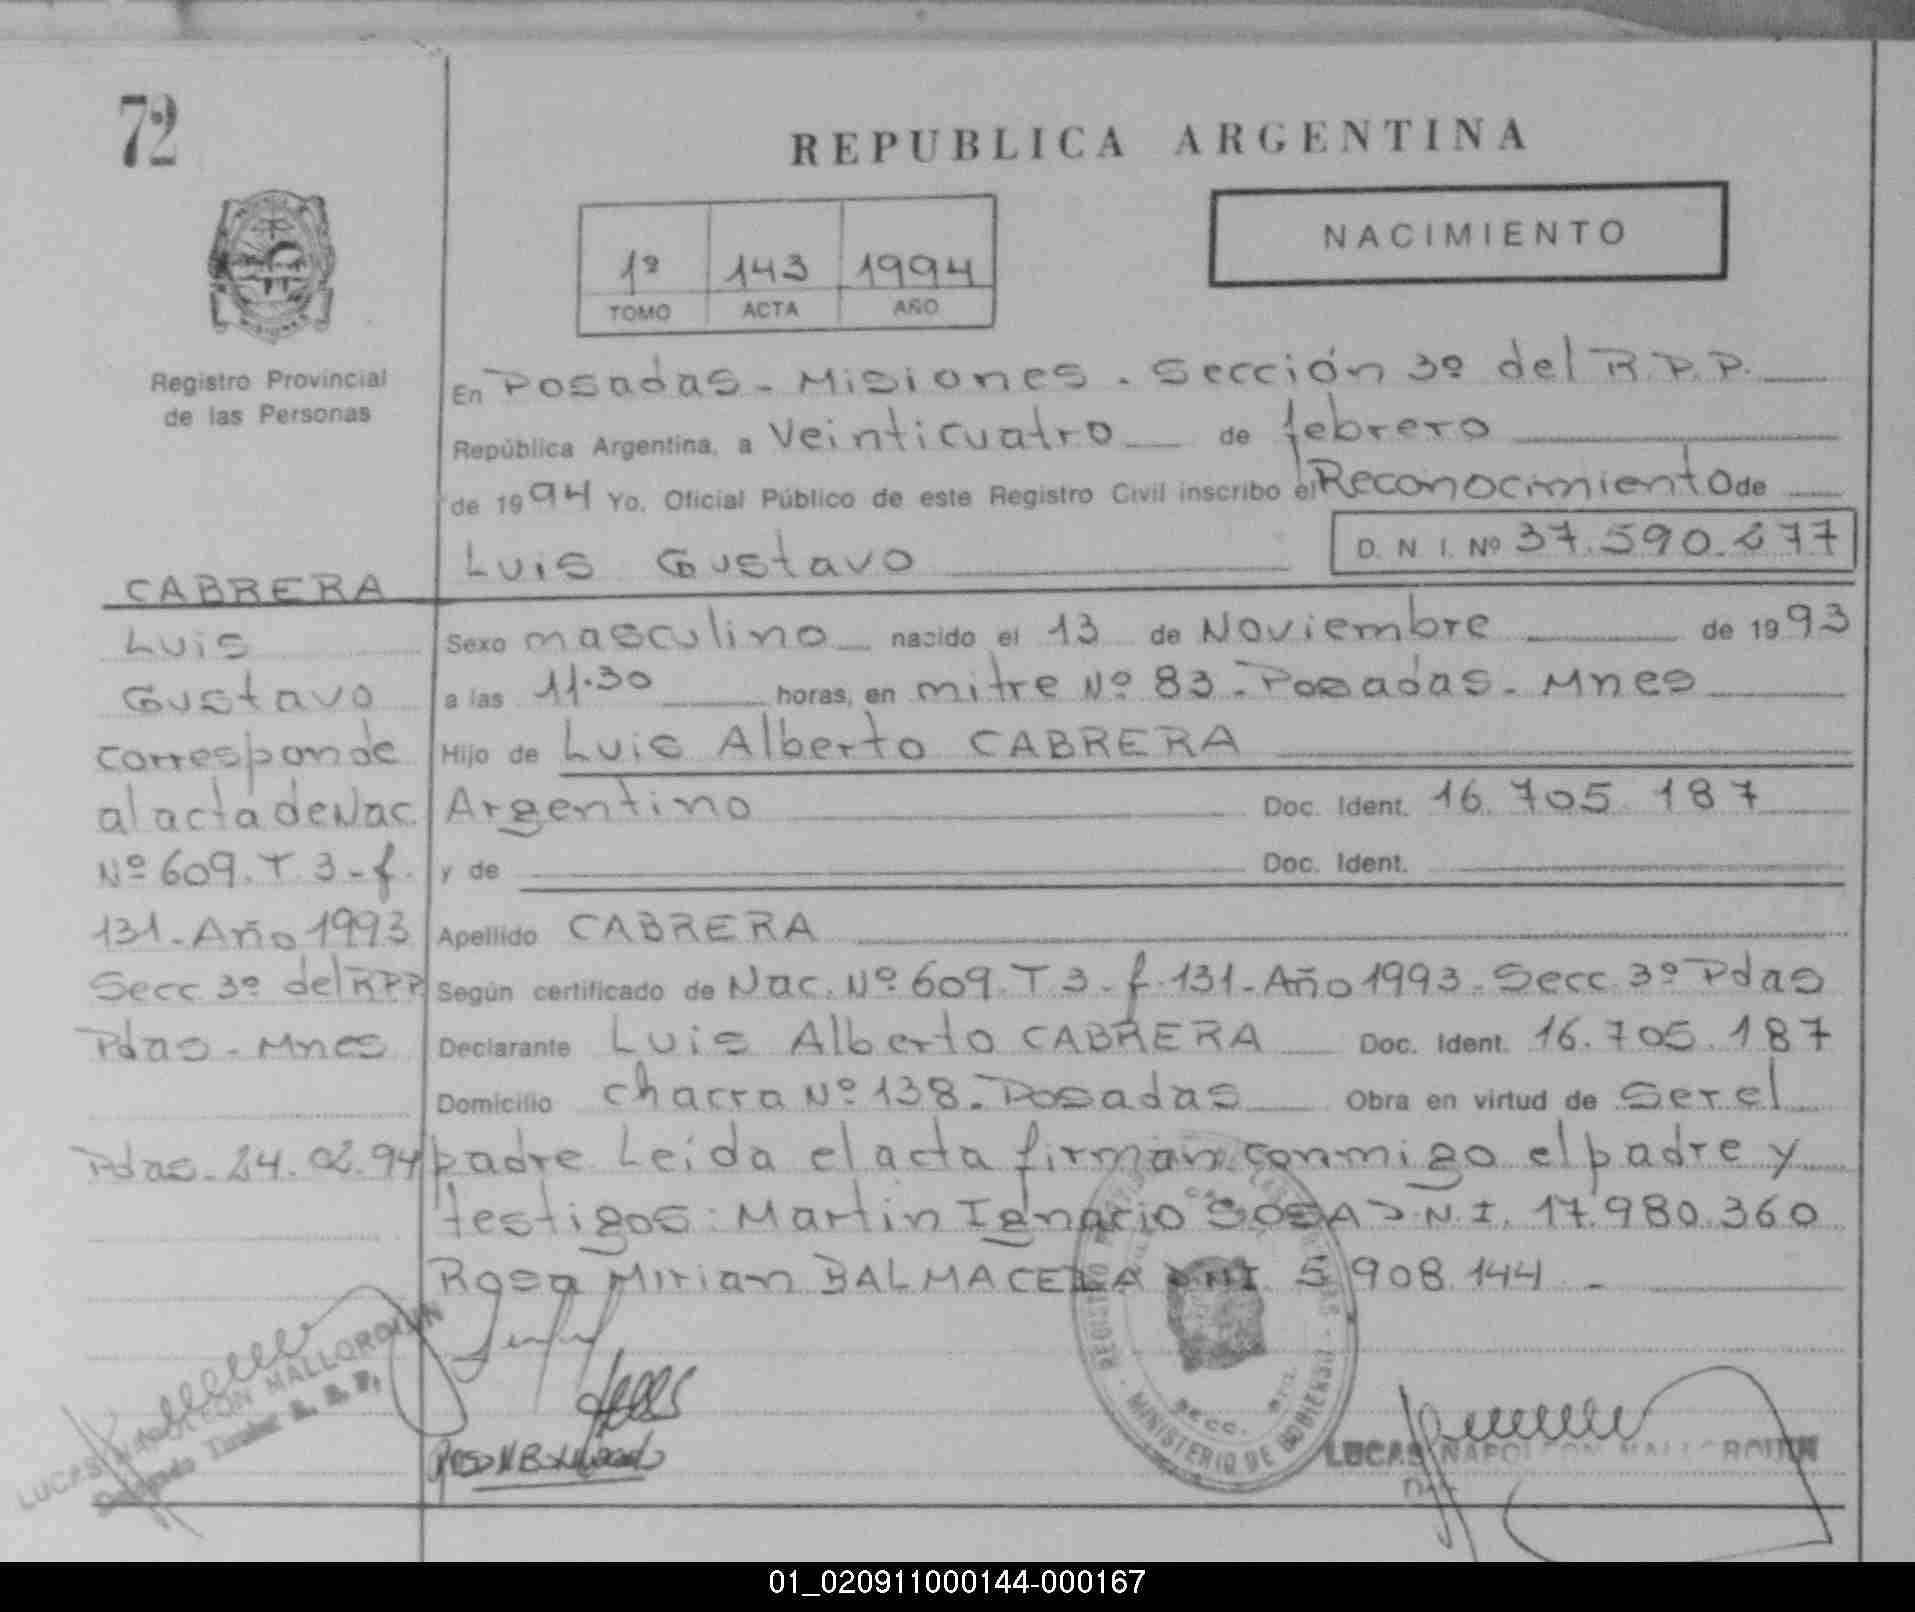 72
REPUBLICA ARGENTINA
NACIMIENTO
1º 143 1994
TOMO ACTA AÑO
MISIONES
Registro Provincial
de las Personas
En Posadas - Misiones. Sección 3º del R.P.P.
República Argentina, a Veinticuatro de febrero
de 1994 Yo, Oficial Público de este Registro Civil inscribo el Reconocimiento de
Luis Gustavo D. N. I. Nº 37.590.277
CABRERA
Luis
Gustavo
corresponde
al acta de Nac
Nº 609. T 3 - f.
131 - Año 1993
Secc. 3º del RPP
Pdas - Mnes
Pdas. 24.02.94
Sexo masculino nacido el 13 de Noviembre de 1993
a las 11.30 horas, en mitre Nº 83 - Posadas - Mnes
Hijo de Luis Alberto CABRERA
Argentino Doc. Ident. 16.705.187
y de Doc. Ident.
Apellido CABRERA
Según certificado de Nac. Nº 609. T 3 - f. 131 - Año 1993 - Secc. 3º Pdas
Declarante Luis Alberto CABRERA Doc. Ident. 16.705.187
Domicilio chacra Nº 138 - Posadas Obra en virtud de Ser el
padre Leída el acta firman conmigo el padre y
testigos: Martin Ignacio SOSA D.N.I. 17.980.360
Rosa Mirian BALMACEDA DNI 5.908.144 -
LUCAS NAPOLEON MALLORQUIN
Delegado Titular R. P. P.
MINISTERIO DE GOBIERNO
SECC.
LUCAS NAPOLEON MALLORQUIN
01_020911000144-000167